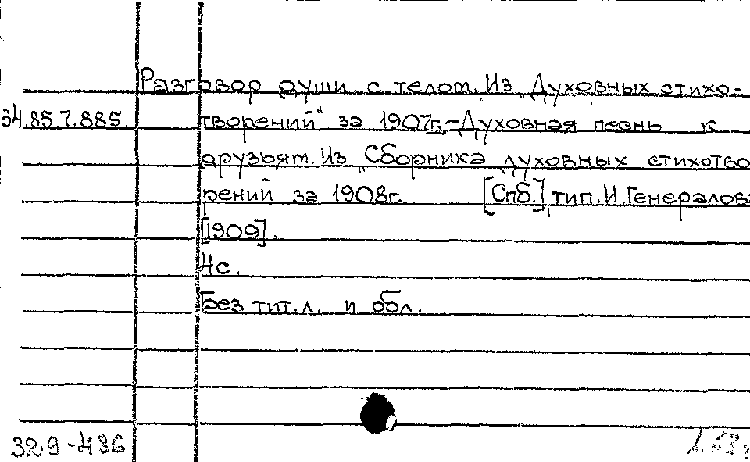 Разговор души с телом. Из „Духовных стихо-
34.85.7.885 творений" за 1907г.-Духовная песнь к
друзьям. Из „Сборника духовных стихотво
рений за 1908г. [Спб.] тип. И. Генералова
[1909].
4с.
Без тит.л. и обл.
32.9-436